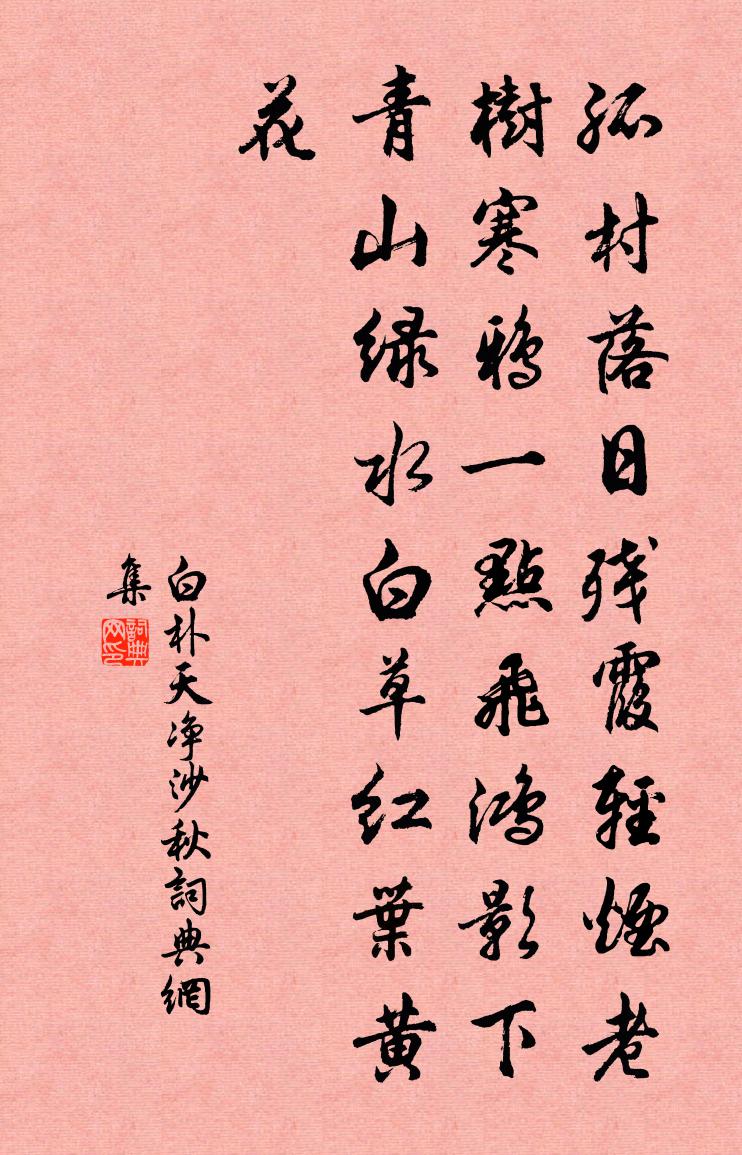 孤村落日残霞輕煙老
樹寒鴉一點飛鴻影下
青山绿水白草红葉黄
花
白朴天净沙秋詞典網
集
詞典
网印